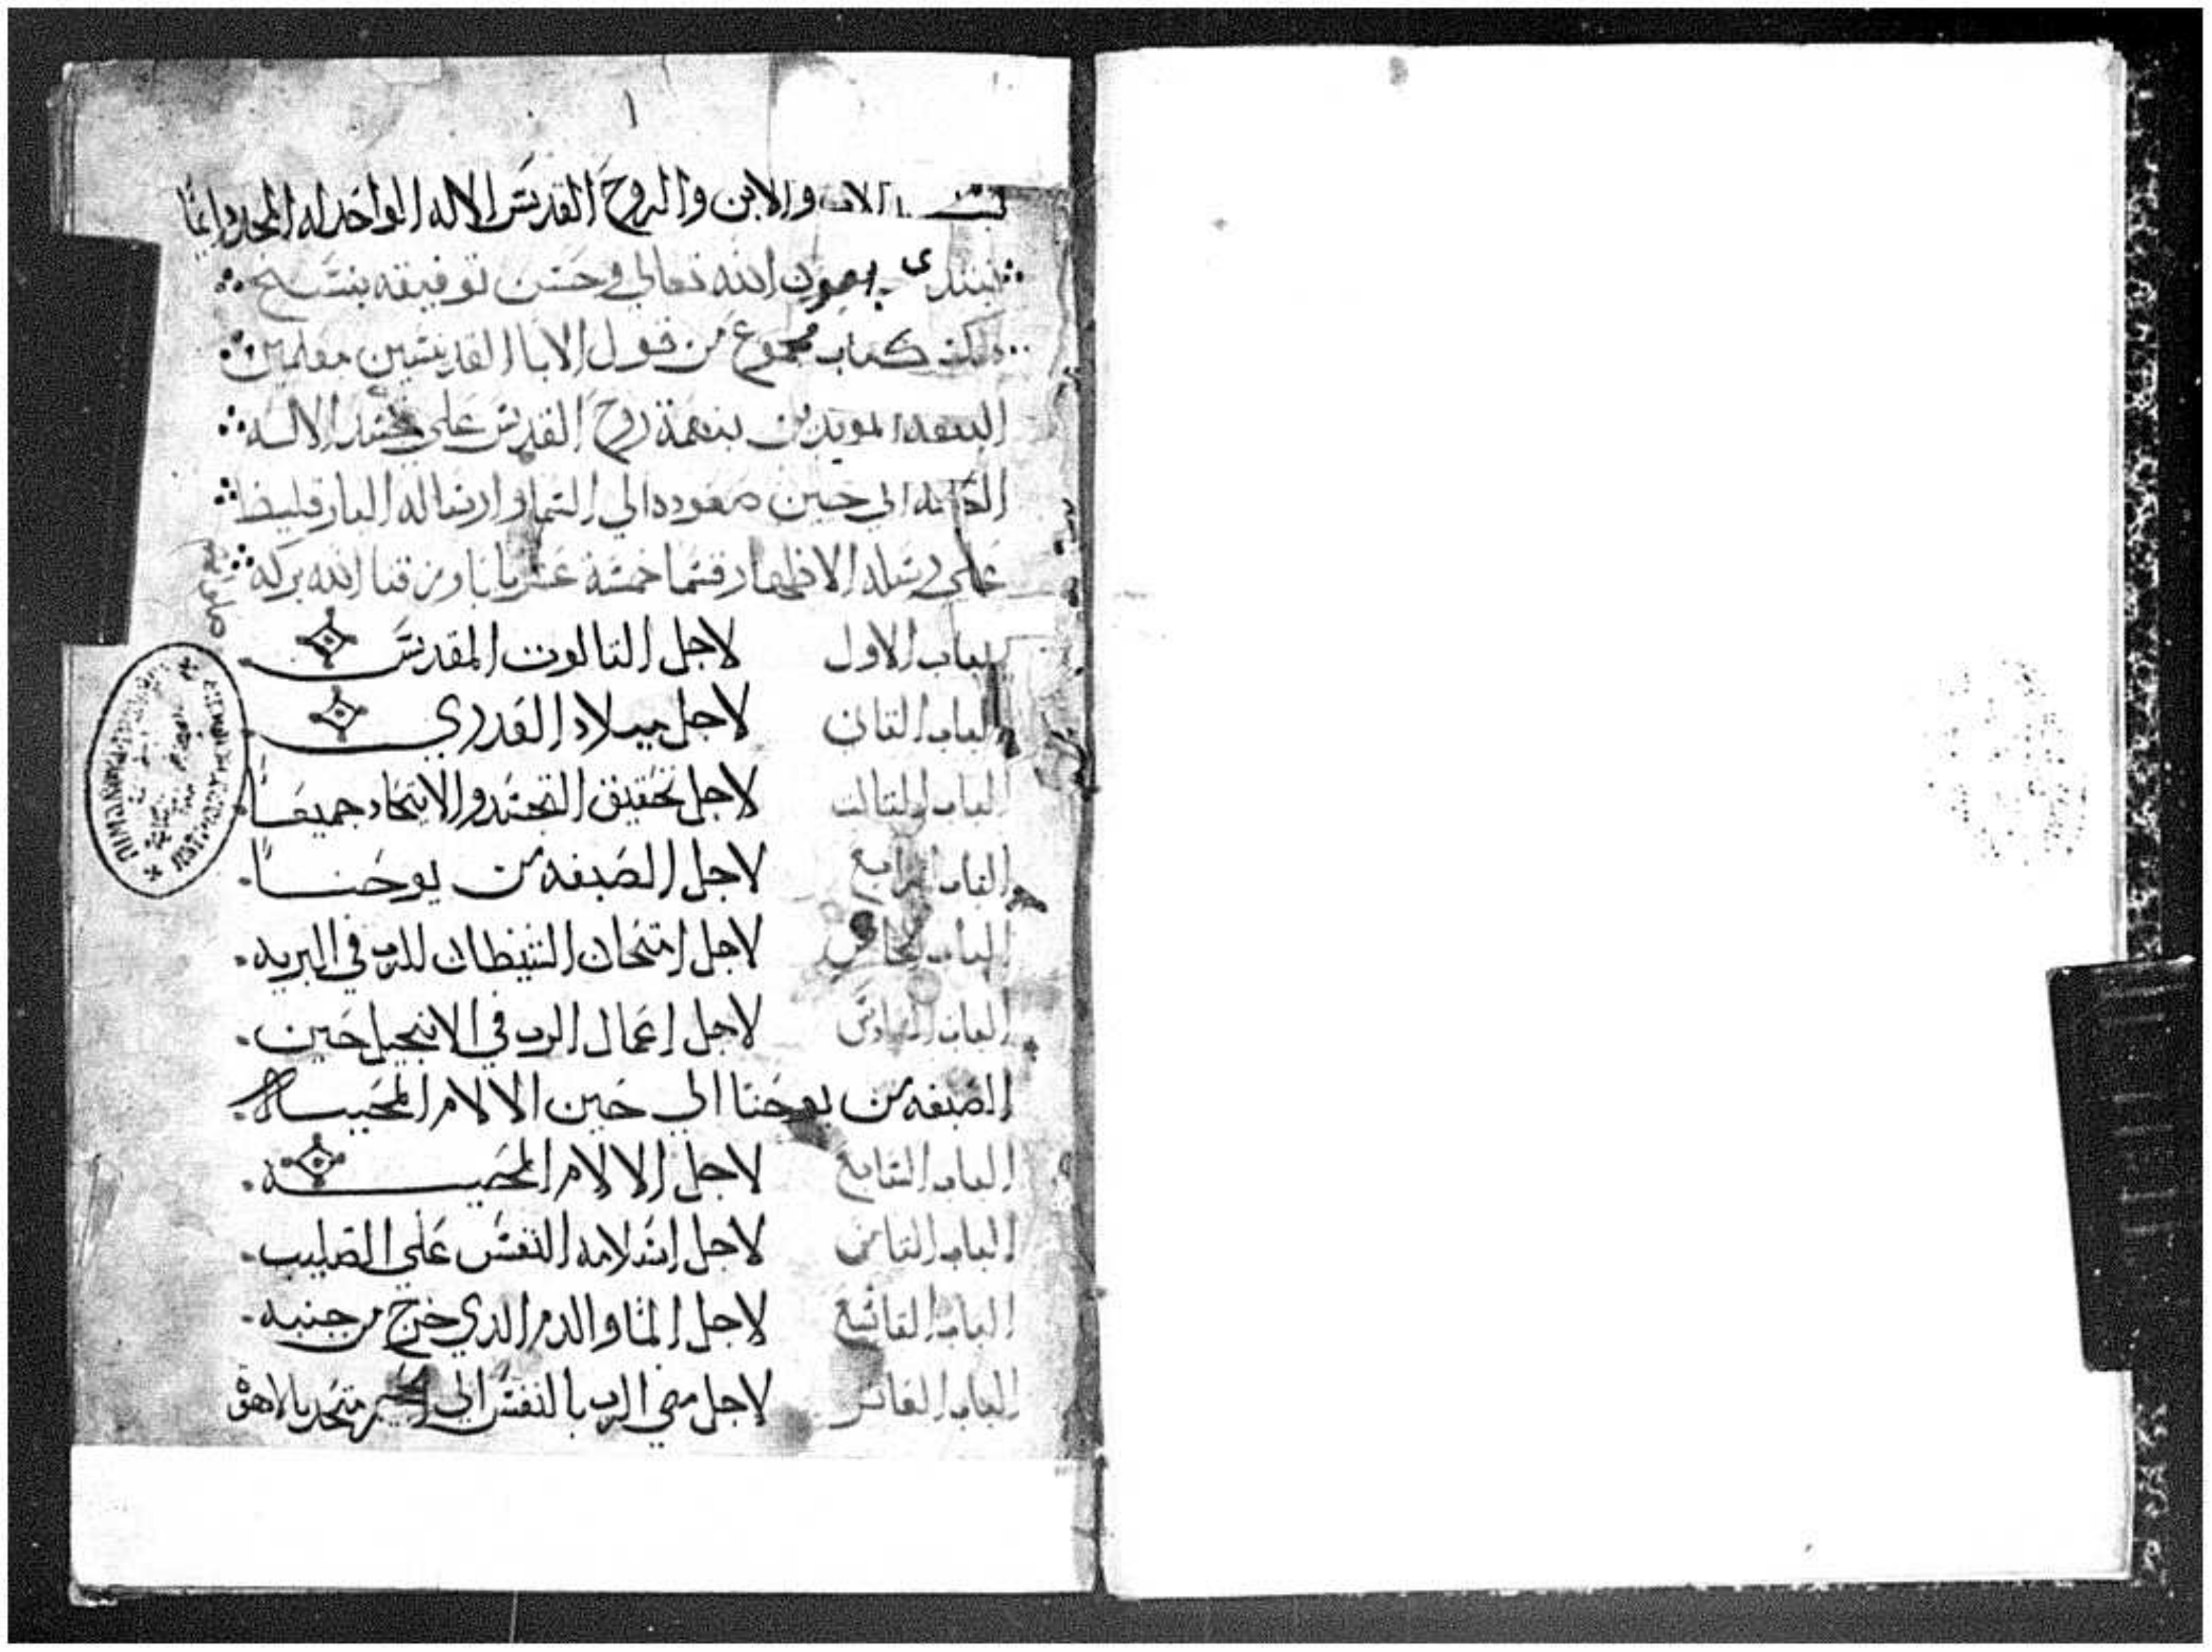 ١
بسم الاب والابن والروح القدس الاله الواحد له المجد دايمًا
نبتدى بعون الله تعالي وحسن توفيقه بنسخ
ذلك كتاب مجموع من قول الابا القديسين معلمين
البيعه المويدين بنعمة روح القدس على تجسد الاله
الكلمه الي حين صعوده الي السما وارساله البارقليط
على رسله الاطهار قسما خمسة عشر بابا ورزقنا الله بركة
صلواتهم
الباب الاول لاجل التالوت المقدس
الباب التانى لاجل ميلاد القدري
الباب التالت لاجل تحقيق التجسد والاتحاد جميعًا
الباب الرابع لاجل الصبغه من يوحنا
الباب الخامس لاجل امتحان الشيطان للرب في البريه
الباب السادس لاجل اعمال الرب في الانجيل حين
الصبغه من يوحنا الي حين الالام المحييه
الباب السابع لاجل الالام المحييه
الباب التامن لاجل اسلامه النفس على الصليب
الباب التاسع لاجل الما والدم الذي خرج من جنبه
الباب العاشر لاجل مضي الرب بالنفس الي الجحيم متحد بلاهوته